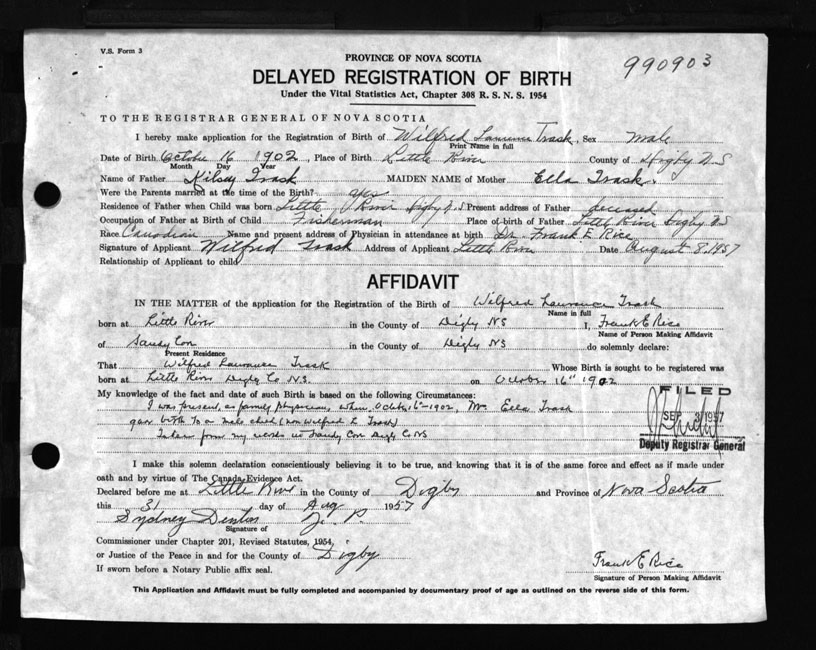 V.S. Form 3
PROVINCE OF NOVA SCOTIA
990903
DELAYED REGISTRATION OF BIRTH
Under the Vital Statistics Act, Chapter 308 R. S. N. S. 1954
TO THE REGISTRAR GENERAL OF NOVA SCOTIA
I hereby make application for the Registration of Birth of Wilfred Laurence Trask, Sex male
Print Name in full
Date of Birth October 16 1902, Place of Birth Little River County of Digby N.S
Month Day Year
Name of Father Trask MAIDEN NAME of Mother Ella Trask
Were the Parents married at the time of the Birth? yes
Residence of Father when Child was born Little River Digby N.S Present address of Father deceased
Occupation of Father at Birth of Child Fisherman Place of birth of Father Little River Digby N.S
Race Canadian Name and present address of Physician in attendance at birth Dr. Frank E. Rice
Signature of Applicant Wilfred Trask Address of Applicant Little River Date August 8, 1957
Relationship of Applicant to child
AFFIDAVIT
IN THE MATTER of the application for the Registration of the Birth of Wilfred Lawrance Trask
Name in full
born at Little River in the County of Digby NS I, Frank E Rice
Name of Person Making Affidavit
of Sandy Cove in the County of Digby NS do solemnly declare:
Present Residence
That Wilfred Lawrance Trask Whose Birth is sought to be registered was
born at Little River Digby Co N.S. on October 16" 1902
My knowledge of the fact and date of such Birth is based on the following Circumstances:
I was present, as family physician, when October 16"-1902, Mrs Ella Trask
gave birth to a male child (now Wilfred L Trask)
Taken from my records at Sandy Cove Digby Co NS
FILED
SEP 3 1957
Deputy Registrar General
I make this solemn declaration conscientiously believing it to be true, and knowing that it is of the same force and effect as if made under
oath and by virtue of The Canada Evidence Act.
Declared before me at Little River in the County of Digby and Province of Nova Scotia
this 31 day of Aug 1957
Sydney Denton J. P.
Signature of
Commissioner under Chapter 201, Revised Statutes, 1954,
or Justice of the Peace in and for the County of Digby
If sworn before a Notary Public affix seal.
Frank E Rice
Signature of Person Making Affidavit
This Application and Affidavit must be fully completed and accompanied by documentary proof of age as outlined on the reverse side of this form.